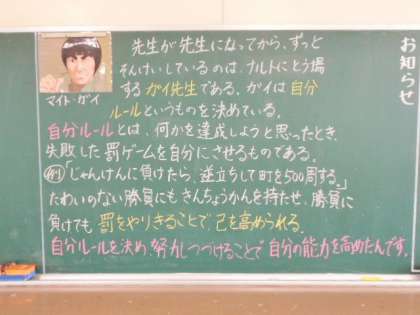 お知らせ
先生が先生になってから、ずっと
そんけいしているのは、ナルトにとう場
するガイ先生である。ガイは自分
ルールというものを決めている。
マイト・ガイ
自分ルールとは、何かを達成しようと思ったとき、
失敗した罰ゲームを自分にさせるものである。
例「じゃんけんに負けたら、逆立ちして町を500周する。」
たわいのない勝負にもきんちょうかんを持たせ、勝負に
負けても罰をやりきることで、己を高められる。
自分ルールを決め、努力しつづけることで自分の能力を高めたんです。